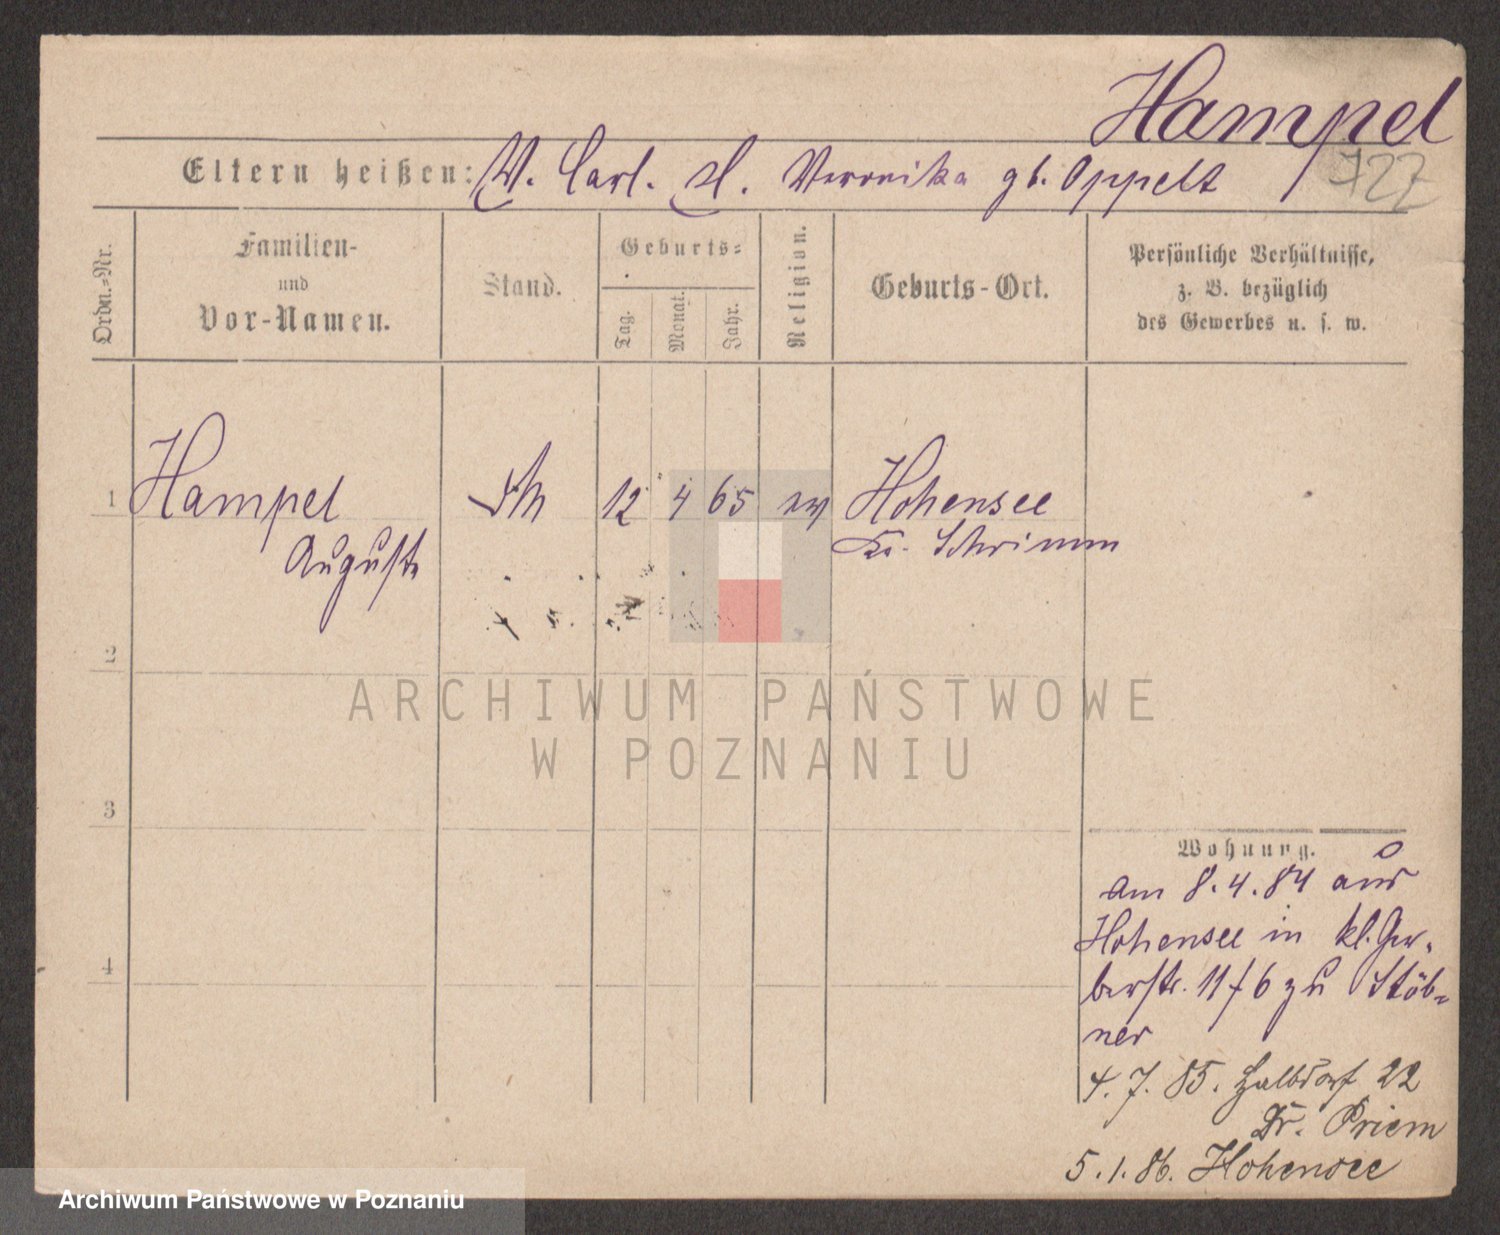 Hampel
722
Eltern heißen: V. Carl. M. Veronika gb. Oppelt
Ordn.-Nr.
Familien-
und
Vor-Namen.
Stand.
Geburts-
Tag.
Monat.
Jahr.
Religion.
Geburts-Ort.
Persönliche Verhältnisse,
z. B. bezüglich
des Gewerbes u. s. w.
1 Hampel 12 4 65 ev Hohensee
Auguste Kr. Schrimm
2
3
4
Wohnung.
am 8.4.84 aus
Hohensee in kl. Ger-
berstr. 11 f 6 zu Stöb-
ner
4.7.85. Halbdorf 22
Dr. Priem
5.1.86. Hohensee
ARCHIWUM PAŃSTWOWE
W POZNANIU
Archiwum Państwowe w Poznaniu